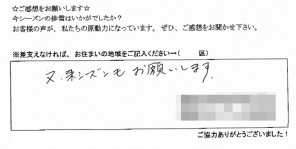 ☆ご感想をお願いします☆
今シーズンの排雪はいかがでしたか？
お客様の声が、私たちの原動力になっています。ぜひ、ご感想をお聞かせ下さい。
※差支えなければ、お住まいの地域をご記入ください→（　　　区）
又、来シーズンもお願いします。
ご協力ありがとうございました！